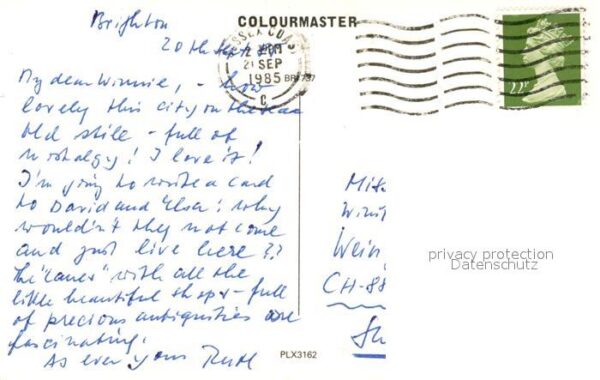 Brighton
COLOURMASTER
20th Sept
SUSSEX COAST
21 SEP
1985
C
BR7737
22P
My dear Winnie, - how
lovely this city on the sea
old stile - full of
nostalgy! I love it!
I'm going to write a card
to David and Elsa: why
wouldn't they not come
and just live here??
The "Lanes" with all the
little beautiful shops - full
of precious antiquities are
fascinating.
As ever yours Ruth
Wein
privacy protection
Datenschutz
CH-88
PLX3162